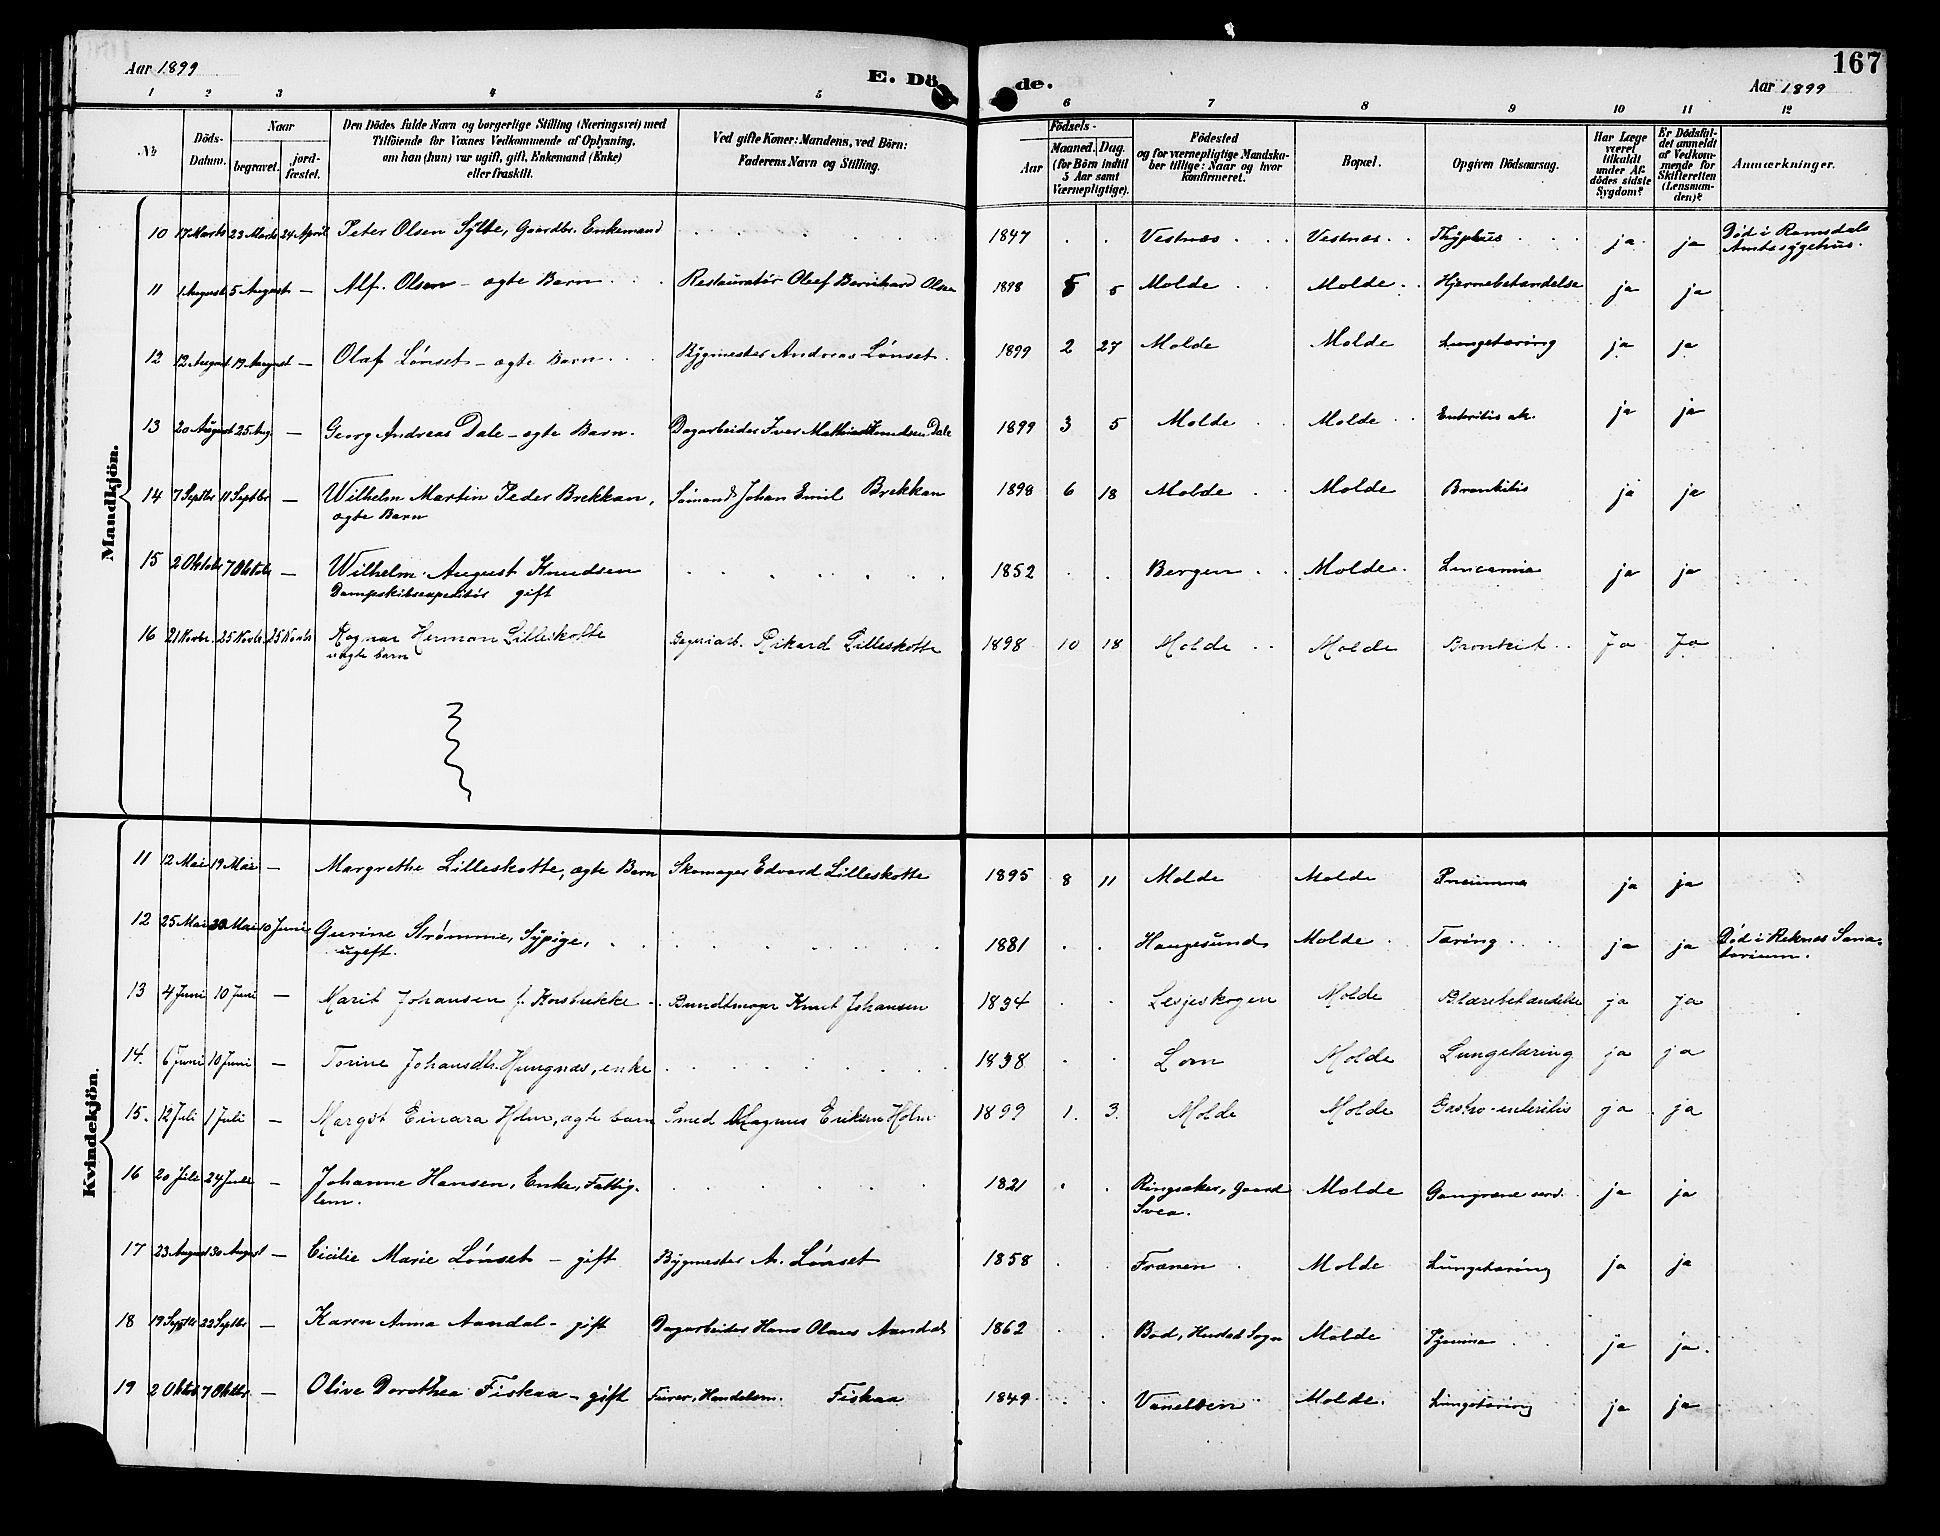 167
Aar 1899 E. Dö de. Aar 1899
1 2 3 4 5 6 7 8 9 10 11 12
No
Döds-Datum.
Naar
begravet.
jord-fæstet.
Den Dödes fulde Navn og borgerlige Stilling (Næringsvei) med
Tilföiende for Voxnes Vedkommende af Oplysning,
om han (hun) var ugift, gift, Enkemand (Enke)
eller fraskilt.
Ved gifte Koner: Mandens, ved Börn:
Faderens Navn og Stilling.
Födsels-
Aar
Maaned. Dag.
(for Börn indtil
5 Aar samt
Værnepligtige).
Födested
og for værnepligtige Mandska-
ber tillige: Naar og hvor
konfirmeret.
Bopæl.
Opgiven Dödsaarsag.
Har Læge
været
tilkaldt
under Af-
dödes sidste
Sygdom?
Er Dödsfal-
det anmeldt
af Vedkom-
mende for
Skifteretten
(Lensman-
den)?
Anmærkninger.
Mandkjön.
10 17 Marts 23 Marts 24 April Peter Olsen Sylte, Gaardbr. Enkemand 1847 Vestnæs Vestnæs Thyphus ja ja Död i Romsdals
Amtssygehus.
11 1 August 5 August — Alf. Olsen – ægte Barn Restauratør Oluf Bernhard Olsen 1898 5 5 Molde Molde Hjernebetændelse ja ja
12 12 August 19 August — Olaf Lønset – ægte Barn Bygmester Andreas Lønset 1899 2 27 Molde Molde Lungetæring ja ja
13 20 August 25 Aug. — Georg Andreas Dale – ægte Barn. Dagarbeider Iver Mathias Knudsen Dale 1899 3 5 Molde Molde Enteritis ak. ja ja
14 7 Septbr 11 Septbr — Wilhelm Martin Peder Brekkan, Sömand Johan Emil Brekkan 1898 6 18 Molde Molde Bronkitis ja ja
ægte Barn
15 2 Oktobr 7 Oktobr — Wilhelm August Knudsen 1852 Bergen Molde ja ja
Dampskibsexpeditör gift
16 21 Novbr. 25 Novbr. 25 Novbr Ragnar Herman Lilleskotte Rikard Lilleskotte 1898 10 18 Molde Molde Bronkit Ja Ja
barn
Kvindekjön.
11 12 Mai 19 Mai — Margrethe Lilleskotte, ægte Barn Skomager Edvard Lilleskotte 1895 8 11 Molde Molde ja ja
12 25 Mai 30 Mai 10 Juni Gurine Strømme, Sypige, 1881 Haugesund Molde Tæring ja ja Död i Reknæs Sana-
ugift. torium.
13 4 Juni 10 Juni — Marit Johansen f. Korsbrekke – Bundtmager Knut Johansen 1834 Lesjeskogen Molde Blærebetændelse ja ja
14. 6 Juni 10 Juni — Torine Johansdtr. Hungnæs, enke 1838 Lom Molde Lungetæring ja ja
15. 12 Juli 1 Juli — Margot Einara Holm, ægte barn Smed Magnus Eriksen Holm 1899 1. 3. Molde Molde Gastro-enteritis ja ja
16 20 Juli 24 Juli — Johanne Hansen, Enke, Fattig- 1821 Ringsaker, Gaard Molde Gangræne ja ja
lem. Svea.
17 23 August 30 August — Cicilie Marie Lønset – gift Bygmester A. Lønset 1858 Frænen Molde Lungetæring ja ja
18 19 Septbr 22 Septbr — Karen Anna Aandal – gift Dagarbeider Hans Olaus Aandal 1862 Bod, Hustad Sogn Molde ja ja.
19 2 Oktbr 7 Oktbr. — Olive Dorothea Fiskaa – gift Handelsm. Fiskaa 1849 Vanelven Molde. Lungetæring ja ja